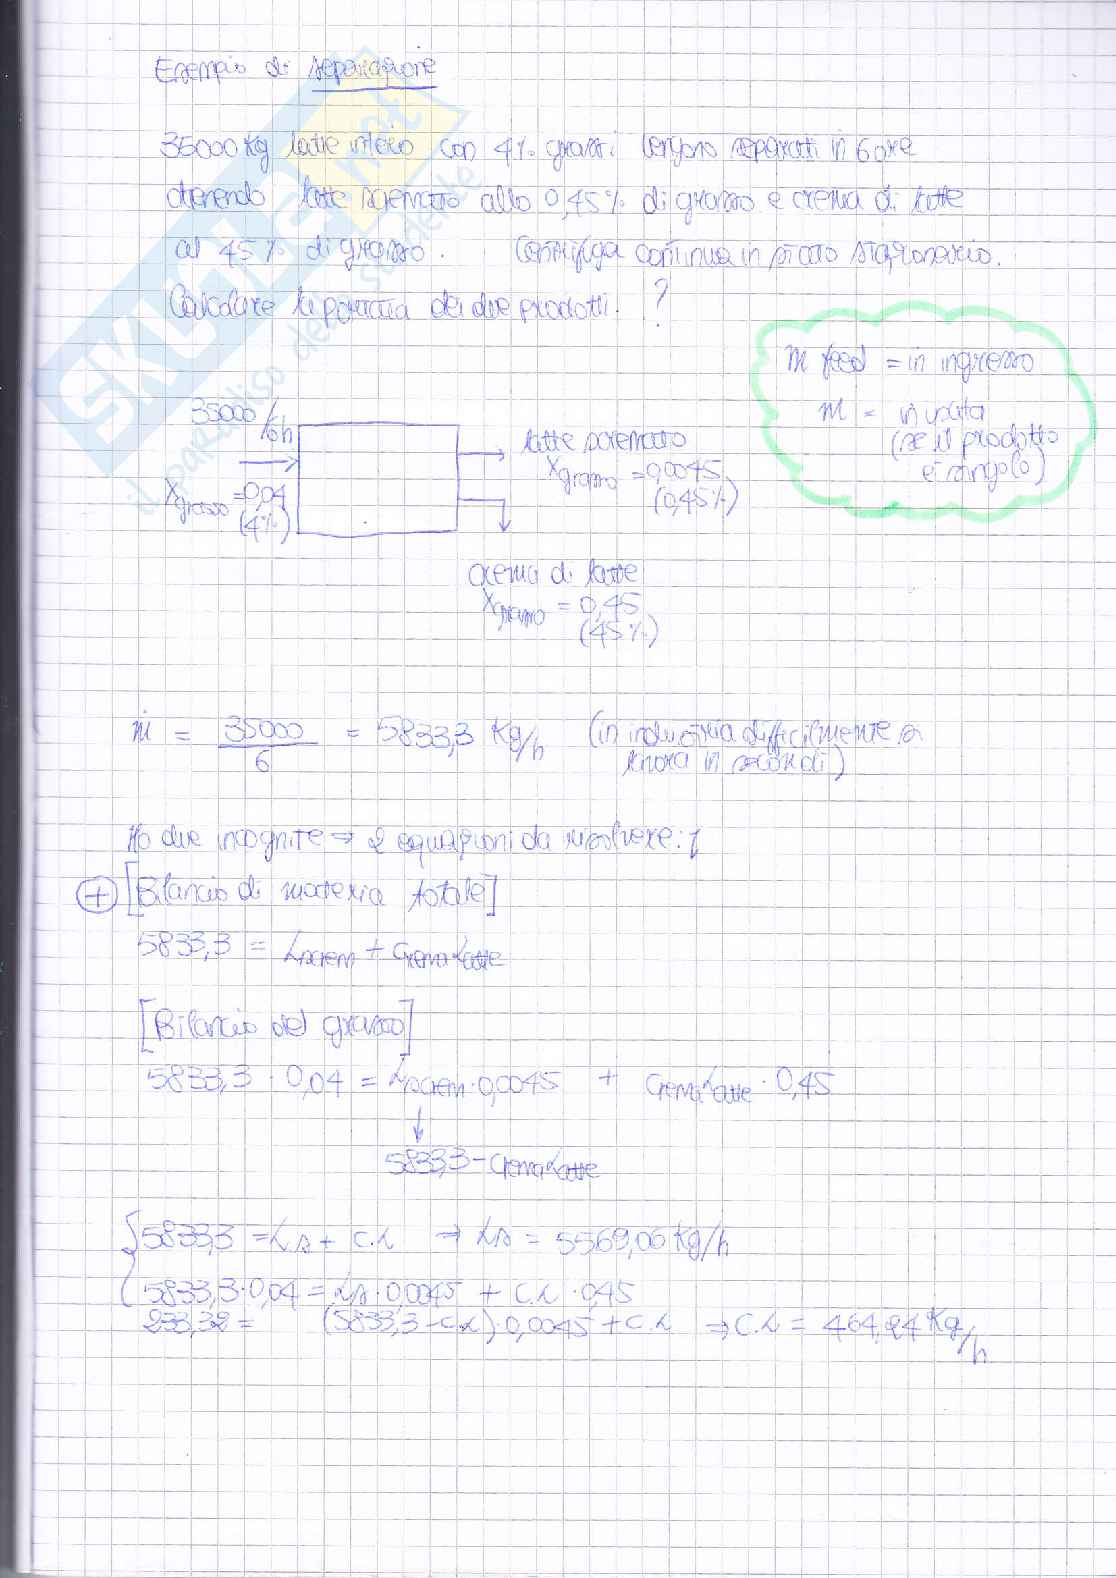 Esempio di separazione
35000 Kg latte intero con 4% grassi vengono separati in 6 ore
ottenendo latte scremato allo 0,45% di grasso e crema di latte
al 45% di grasso. Centrifuga continua in stato stazionario.
Calcolare la portata dei due prodotti. ?
m feed = in ingresso
m = in uscita
(se il prodotto
è singolo)
35000/6h
latte scremato
Xgrasso = 0,0045
(0,45%)
Xgrasso = 0,04
(4%)
crema di latte
Xgrasso = 0,45
(45%)
ṁ = 35000/6 = 5833,3 Kg/h (in industria difficilmente si
lavora in secondi)
Ho due incognite → 2 equazioni da risolvere:
+ [Bilancio di materia totale]
5833,3 = Lscrem + CremaLatte
[Bilancio del grasso]
5833,3 · 0,04 = Lscrem · 0,0045 + CremaLatte · 0,45
↓
5833,3 - CremaLatte
{ 5833,3 = Ls + C.L → Ls = 5569,06 Kg/h
5833,3 · 0,04 = Ls · 0,0045 + C.L · 0,45
233,32 = (5833,3 - C.L) · 0,0045 + C.L → C.L = 464,24 Kg/h
SKUOLA.net
il paradiso dello studente